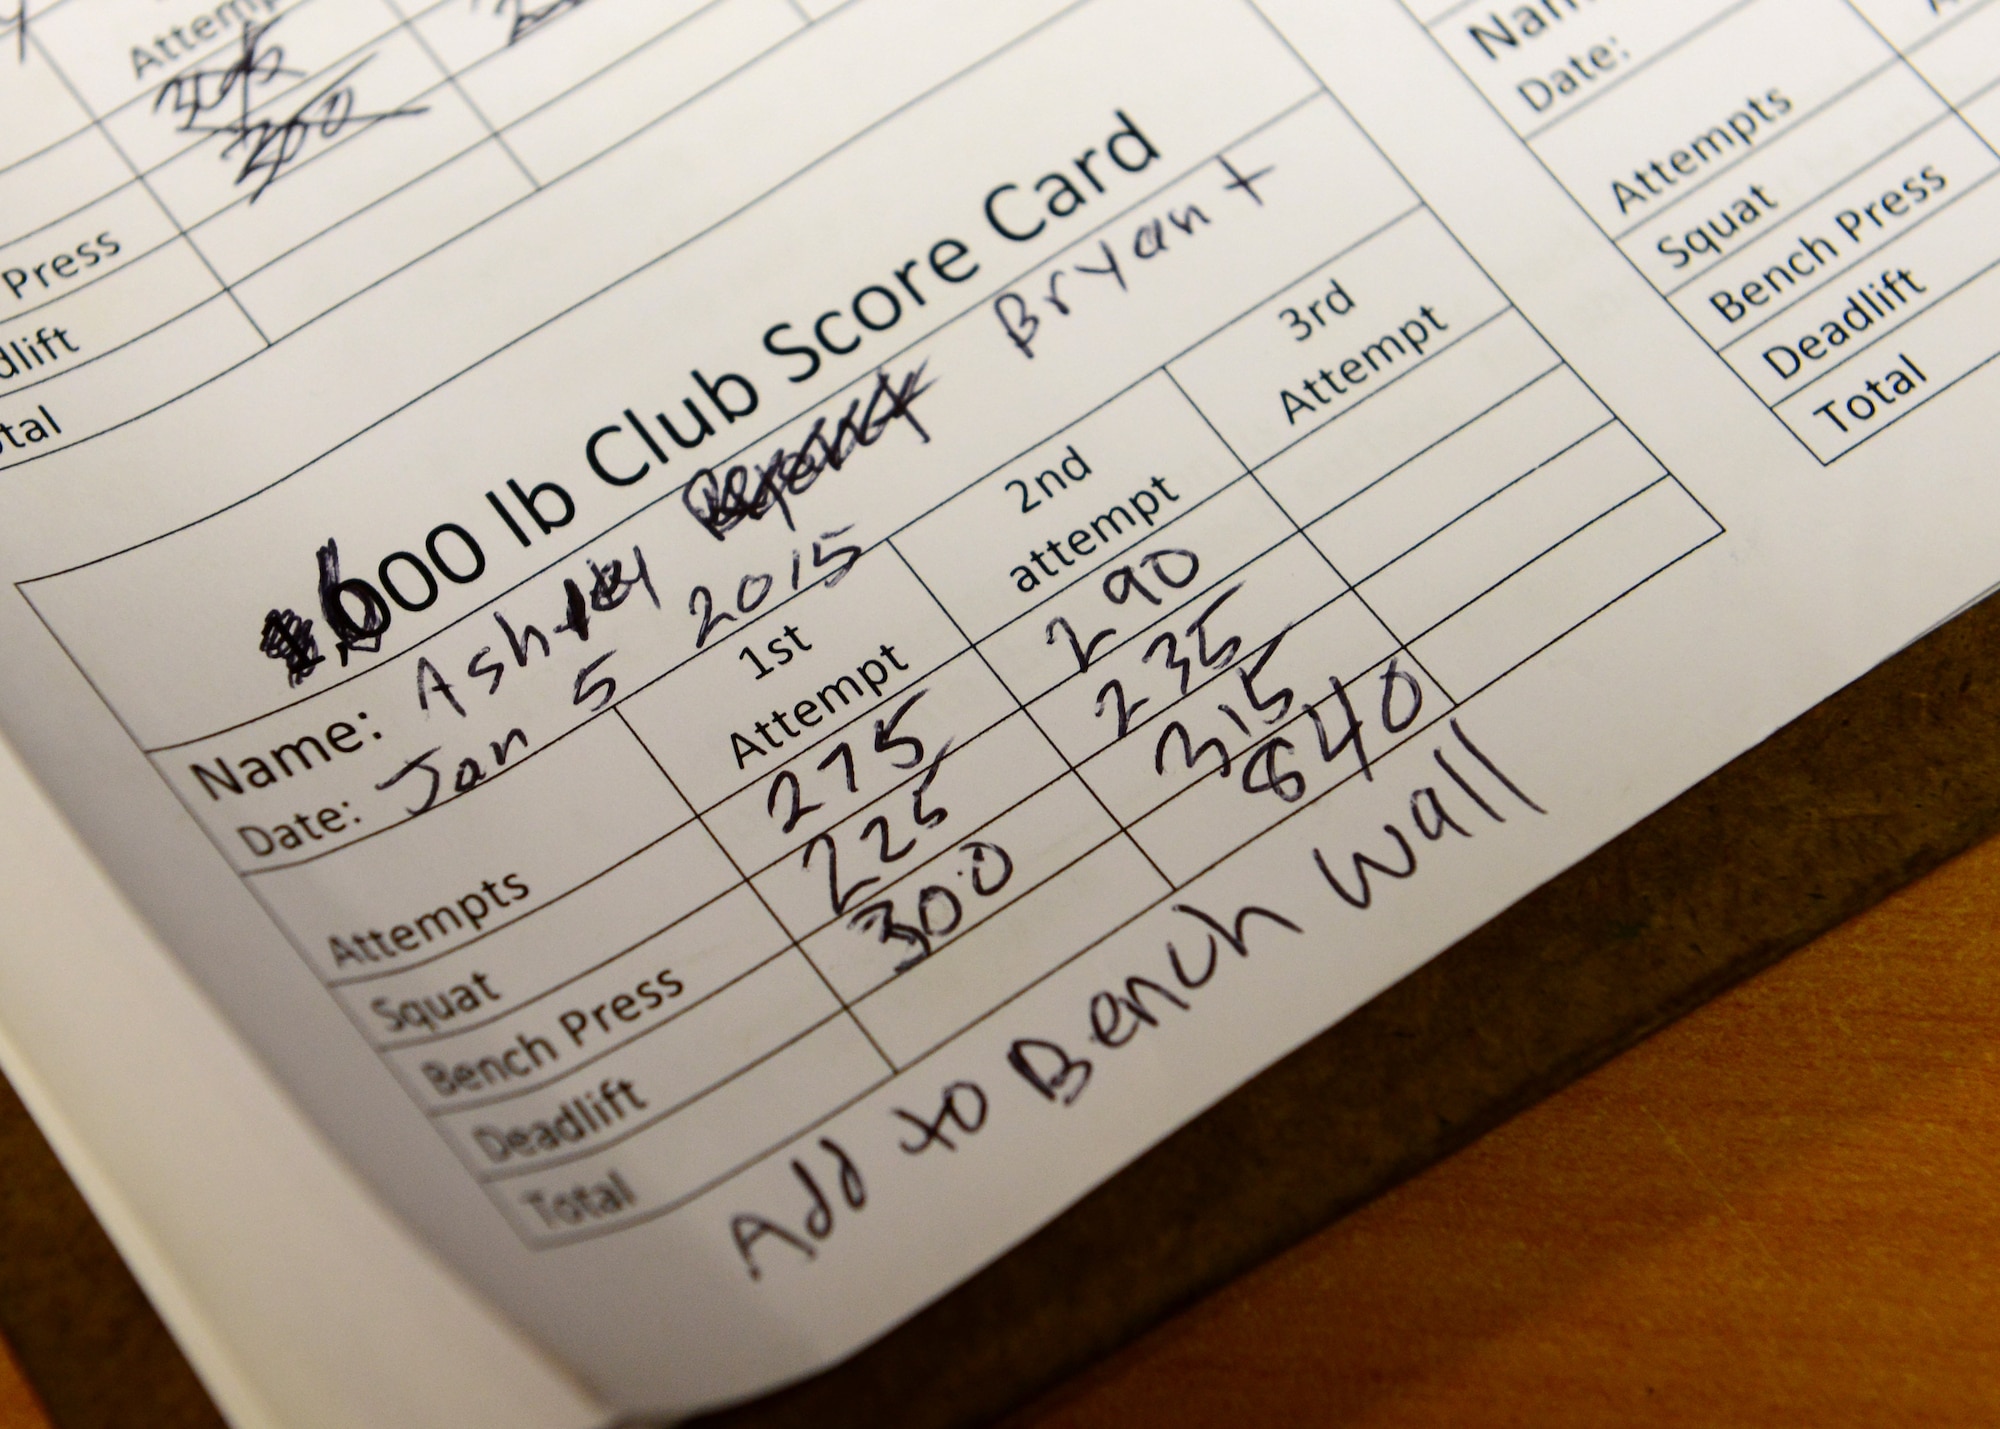 Attemp
305
300
Press
dlift
otal
600 lb Club Score Card
Name: Ashley Bryant
Date: Jan 5 2015
Attempts 1st Attempt 2nd attempt 3rd Attempt
Squat 275 290
Bench Press 225 235
Deadlift 300 315
Total 840
Add to Bench Wall
Nam
Date:
Attempts
Squat
Bench Press
Deadlift
Total